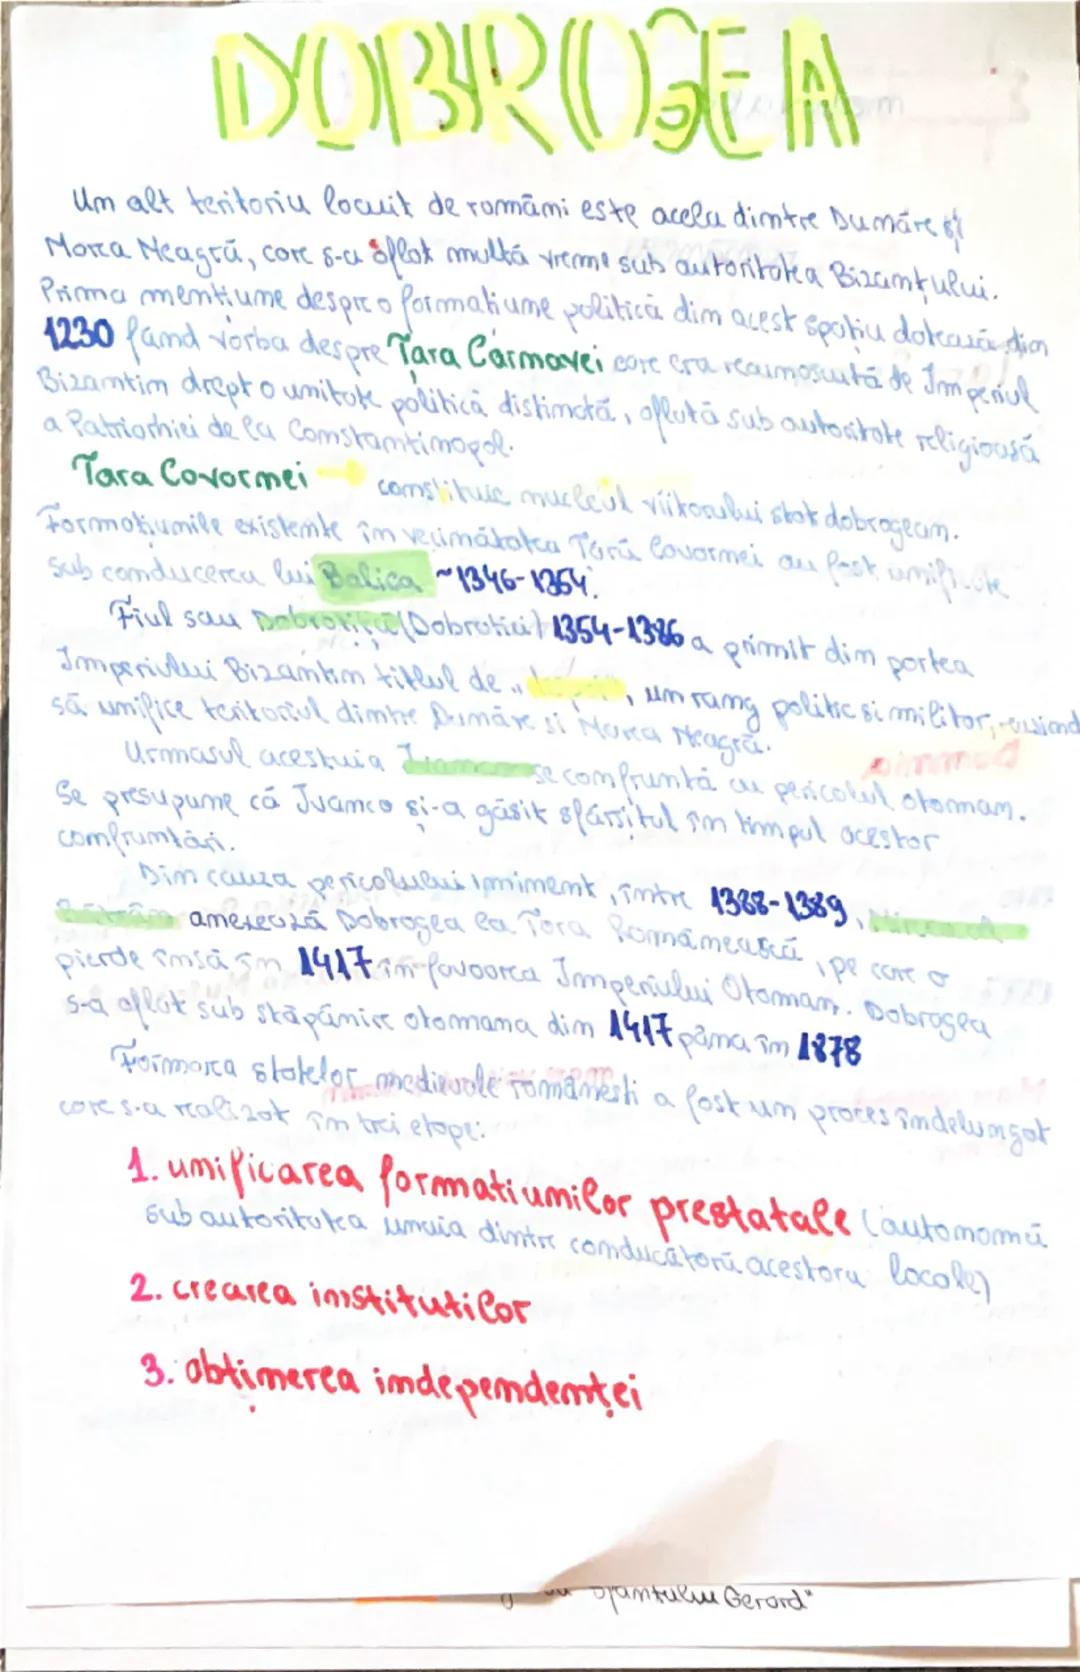 DOBROGEA
Un alt teritoriu locuit de români este acela dintre Dunăre și
Marea Neagră, care s-a aflat multă vreme sub autoritatea Bizanțului.
Prima mențiune despre o formațiune politică din acest spațiu datează din
1230 fiind vorba despre Țara Cărmavei care era recunoscută de Imperiul
Bizantin drept o unitate politică distinctă, aflută sub autoritate religioasă
a Patriarhiei de la Constantinopol.
Tara Cavarnei constituie nucleul viitorului stat dobrogean.
Formațiunile existente în vecinătatea Țării Cavarnei au fost unificate
sub conducerea lui Balica ~1346-1354.
Fiul sau Dobrotiță (Dobrotici) 1354-1386 a primit din partea
Imperiului Bizantin titlul de " ", un rang politic si militar, reusind
să unifice teritoriul dintre Dunăre si Marea Neagră.
Urmasul acestuia se confruntă cu pericolul otoman.
Se presupune că Ivanco si-a găsit sfârșitul în timpul acestor
confruntări.
Din cauza pericolului iminent, între 1388-1389, Mircea cel
Bătrân anexează Dobrogea la Tara Românească, pe care o
pierde însă în 1417 în favoarea Imperiului Otoman. Dobrogea
s-a aflat sub stăpânire otomana din 1417 pâna în 1878
Formarea statelor medievale românesti a fost un proces îndelungat
care s-a realizat în trei etape:
1. unificarea formatiunilor prestatale (autonomă
sub autoritatea unuia dintre conducătorii acestora locale)
2. crearea institutilor
3. obținerea independenței
Sfantului Gerard"